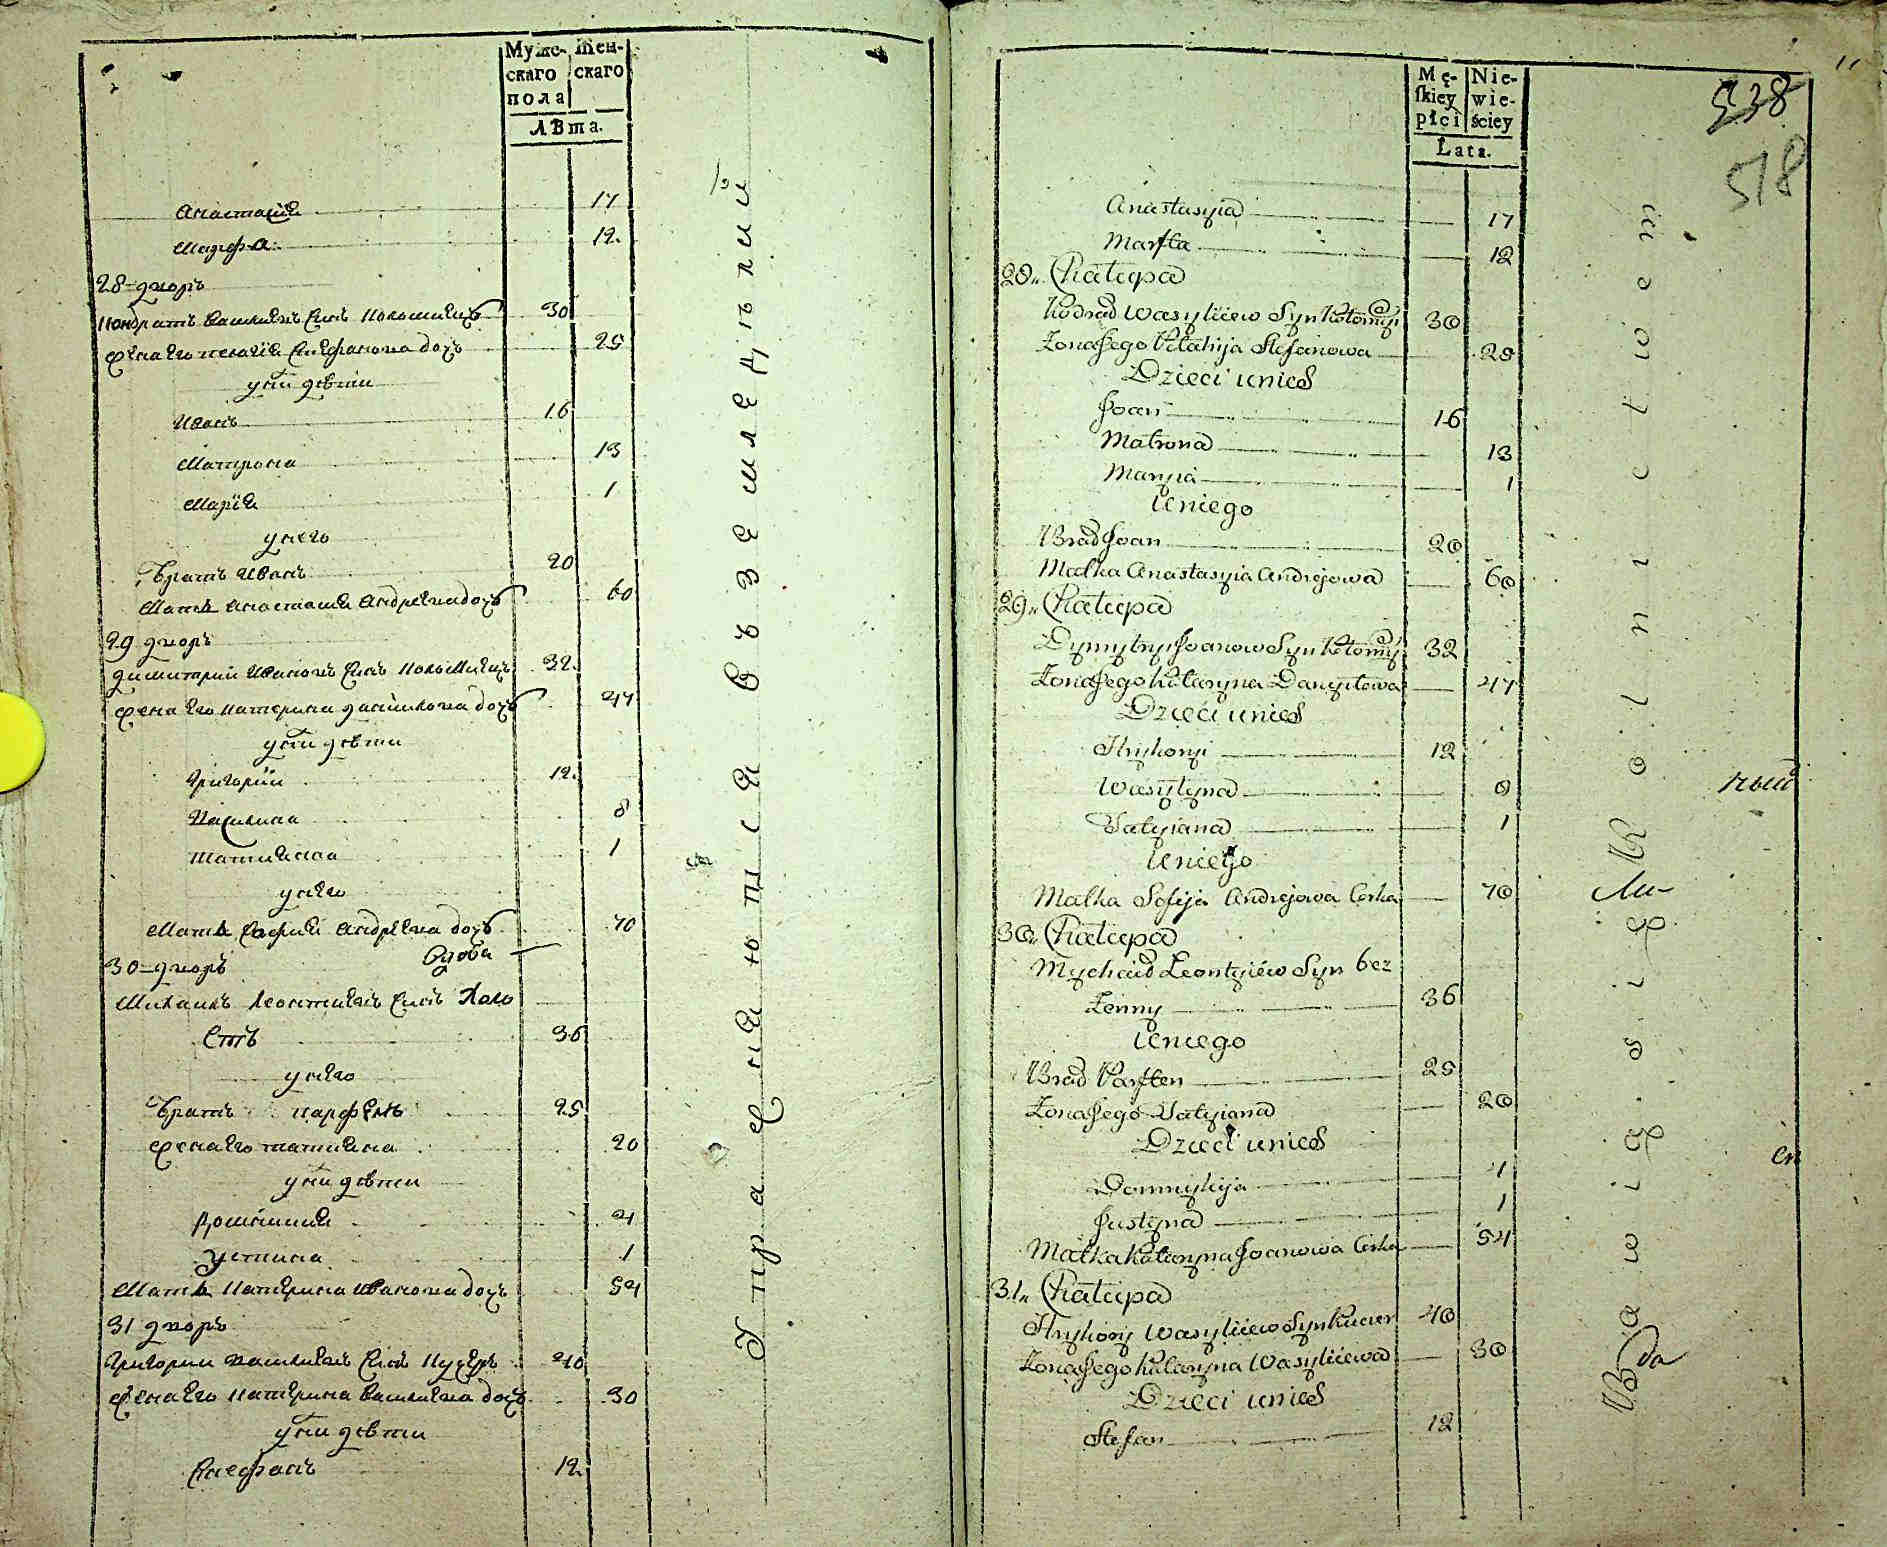 Муже-
скаго
пола
Жен-
скаго
Лѣта.
Анастасiя 17
Марфа 12
28 дворъ
Кондратъ Василiевъ Синъ Коломиецъ 30
Жена Его Пелагiя Стефанова дочь 25
у них дѣти
Иванъ 16
Матрона 13
Марiя 1
у него
Братъ Иванъ 20
Мать Анастасия Андреева дочь 60
29 дворъ
Димитрий Ивановъ Синъ Коломиецъ 32
Жена Его Катерина данилова дочь 27
у них дѣти
Григорий 12
Василина 8
Татияна 1
у него
Мать София Андреева дочь 70
вдова
30 дворъ
Михаилъ Леонтиевъ Синъ Холо
Стъ 36
у него
Братъ Парфенъ 25
Жена Его Татияна 20
у них дѣти
Домникия 4
Устина 1
Мать Катерина Иванова дочь 54
31 дворъ
Григорий Василиевъ Синъ Кучеръ 40
Жена Его Катерина Василиева дочь 30
у них дѣти
Стефанъ 12
Упражняются въ земледѣлии
Mę-
skiey
płci
Nie-
wie-
ściey
Lata.
538
518
Anastasyia 17
Marfta 12
28 Chałupa
Kodrad Wasyliiew Syn Kołomyi 30
Zona Jego Pelahija Stefanowa 25
Dzieci u nich
Joan 16
Matrona 13
Maryia 1
U niego
Brad Joan 20
Matka Anastasyia Andrejowa 60
29 Chałupa
Dymytry Joanow Syn Kołomyi 32
Zona Jego Kataryna Danyłowa 27
Dzieci u nich
Hryhoryi 12
Wasylyna 8
Tatyiana 1
U niego
Matka Sofija Andrejowa Corka 70
30 Chałupa
Mychaiło Leontyiew Syn bez
Zenny 36
U niego
Brad Parften 25
Zona Jego Tatyiana 20
Dzieci u nich
Domnykija 4
Justyna 1
Matka Kataryna Joanowa Corka 54
31 Chałupa
Hryhory Wasyliiew Syn Kuczer 40
Zona Jego Kataryna Wasyliiewa 30
Dzieci u nich
Stefan 12
Bawią się Rolnictwem
ный
Ли-
да